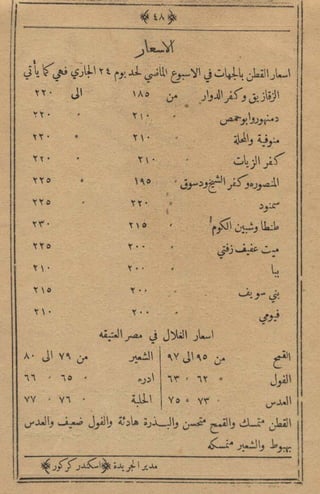 ﴿٤٨﴾
الاسعار
اسعار القطن بالجهات في الاسبوع الماضي لحد يوم ٢٤ الجاري فهي كما يأتي
الزقازيق وكفر الدوار من ١٨٥ الى ٢٢٠
دمنهور وابوحمص " ٢١٠ " ٢٢٠
منوفية والمحلة " ٢١٠ " ٢٣٠
كفر الزيات " ٢١٠ " ٢٢٠
المنصوره وكفر الشيخ ودسوق " ١٩٥ " ٢٢٥
سمنود " ٢٢٠ " ٢٢٥
طنطا وشبين الكوم " ٢١٥ ٢٣٠
ميت عفيف زفتي " ٢٠٠ ٢٢٥
ببا " ٢٠٠ ٢١٠
بني سويف " ٢٠٠ ٢١٥
فيومي " ٢٠٠ ٢١٠
اسعار الغلال في مصر العتيقه
القمح من ٩٥ الى ٩٧ الشعير من ٧٩ الى ٨٠
الفول " ٦٢ " ٦٣ ادره " ٦٥ " ٦٦
العدس " ٧٣ " ٧٥ الحلبة " ٧٦ " ٧٧
القطن متمسك والقمح متحسن والبذرة هادئة والفول ضعيف والعدس
بهبوط والشعير متمسكه
مدير الجريدة ﴿اسكندر كركور﴾